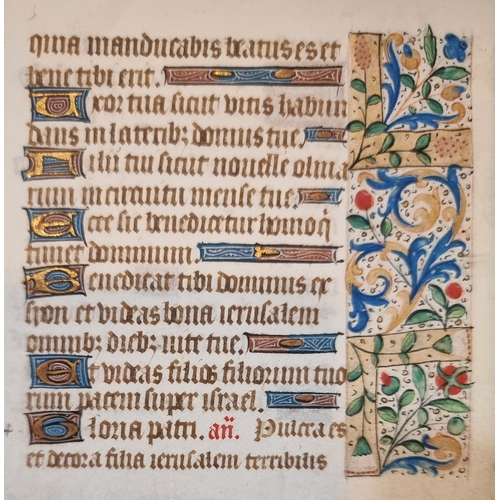 quia manducabis beatus es et
bene tibi erit.
Uxor tua sicut vitis habun
dans in laterib; domus tue.
Filii tui sicut nouelle oliua
rum in circuitu mense tue.
Ecce sic benedicetur homo q̇
timet dominum.
Benedicat tibi dominus ex
syon et videas bona ierusalem
omnib; dieb; uite tue.
Et videas filios filiorum tuo
rum pacem super israel.
Gloria patri. an̄. Pulcra es
et decora filia ierusalem terribilis